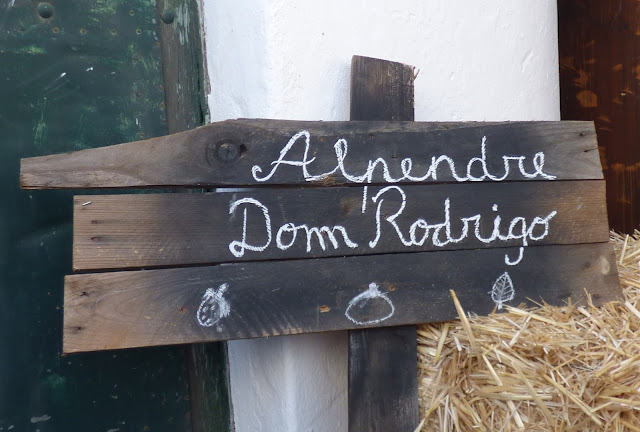 Alpendre
Dom Rodrigo